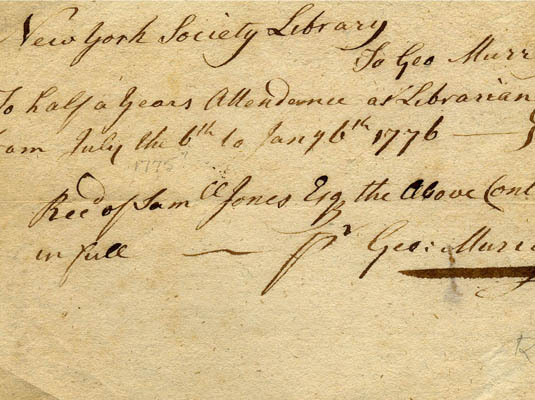 New York Society Library
To Geo Murr
To half a Years Attendance as Librarian
from July the 6th to Jany 6th 1776
1775
Recd of Samll Jones Esqr the Above Cont
in full — pr Geo: Murra